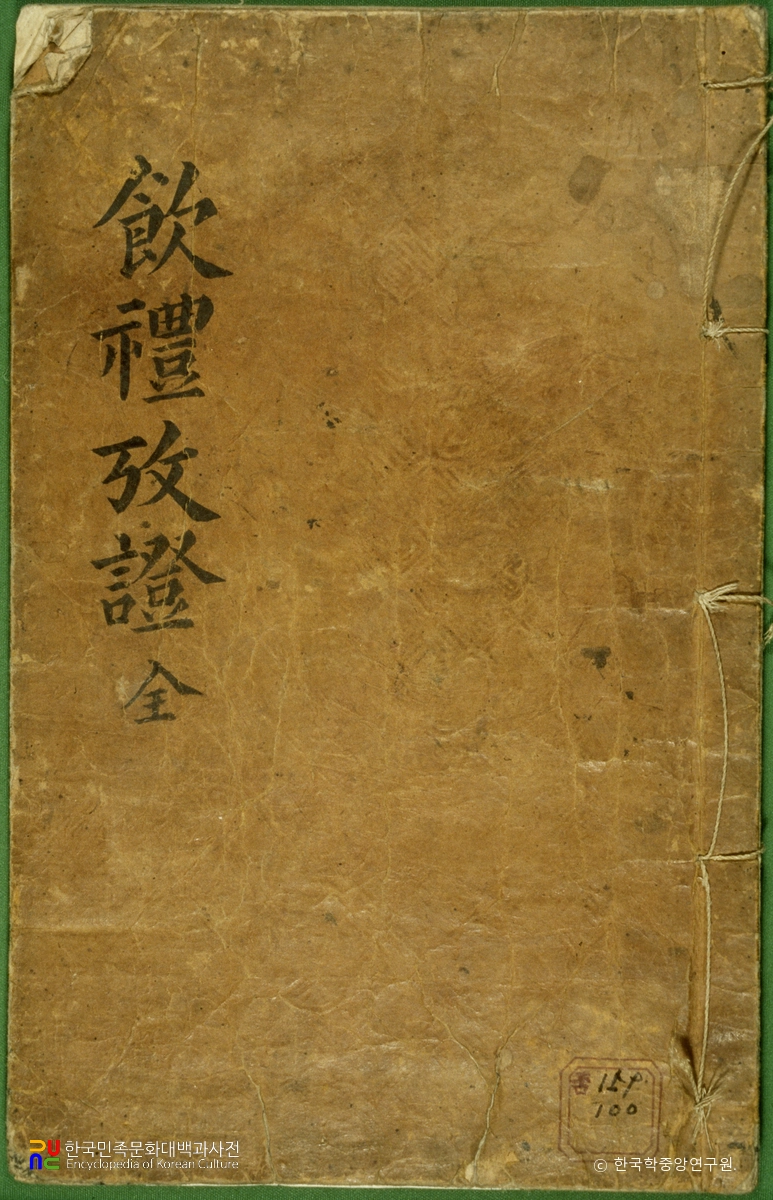 飮禮攷證 全
한국민족문화대백과사전
Encyclopedia of Korean Culture
© 한국학중앙연구원